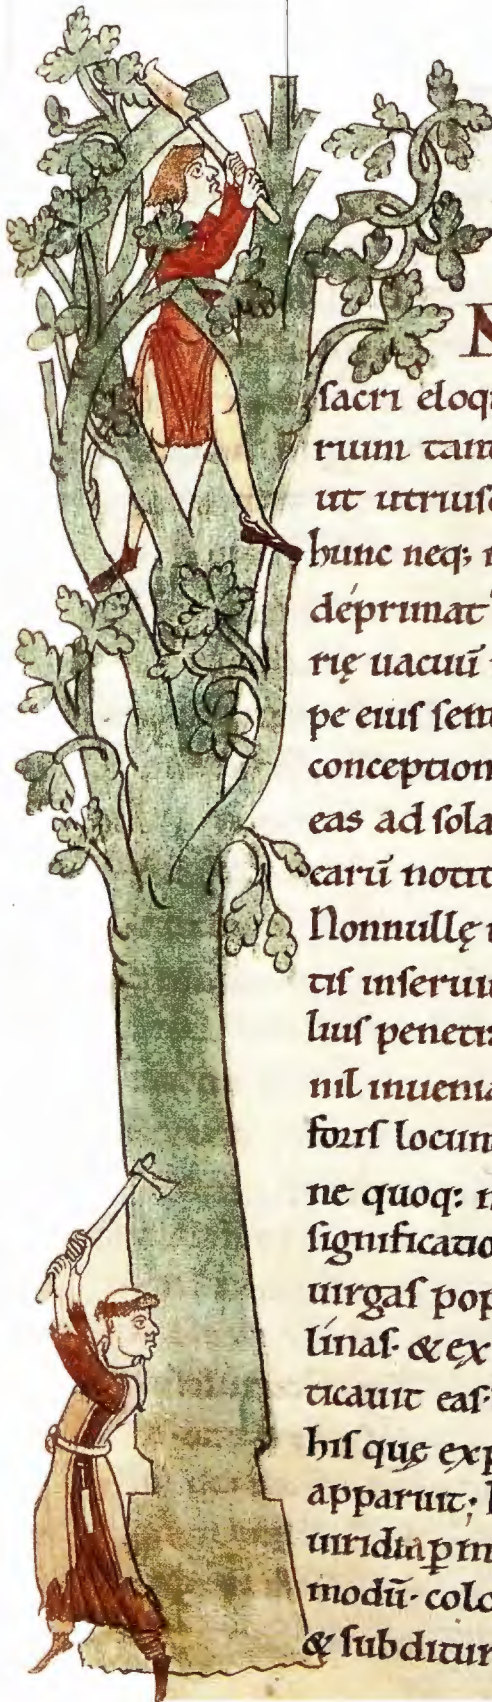 N
sacri eloq
rum tant
ut utrius
hunc neq;
deprimat
rię uacuū
pe eius sent
conception
eas ad sola
earū notit
Nonnullę
tis inseruiu
lius penetr
nil inuenia
foris locun
ne quoq:
significatio
uirgas pop
linas· & ex
ticauit eas·
his quę exp
apparuit;
uiridia pm
modū· colo
& subditur